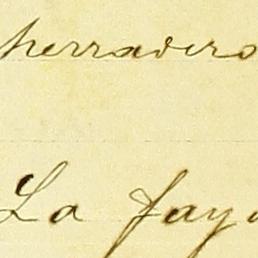 herradero
La faya